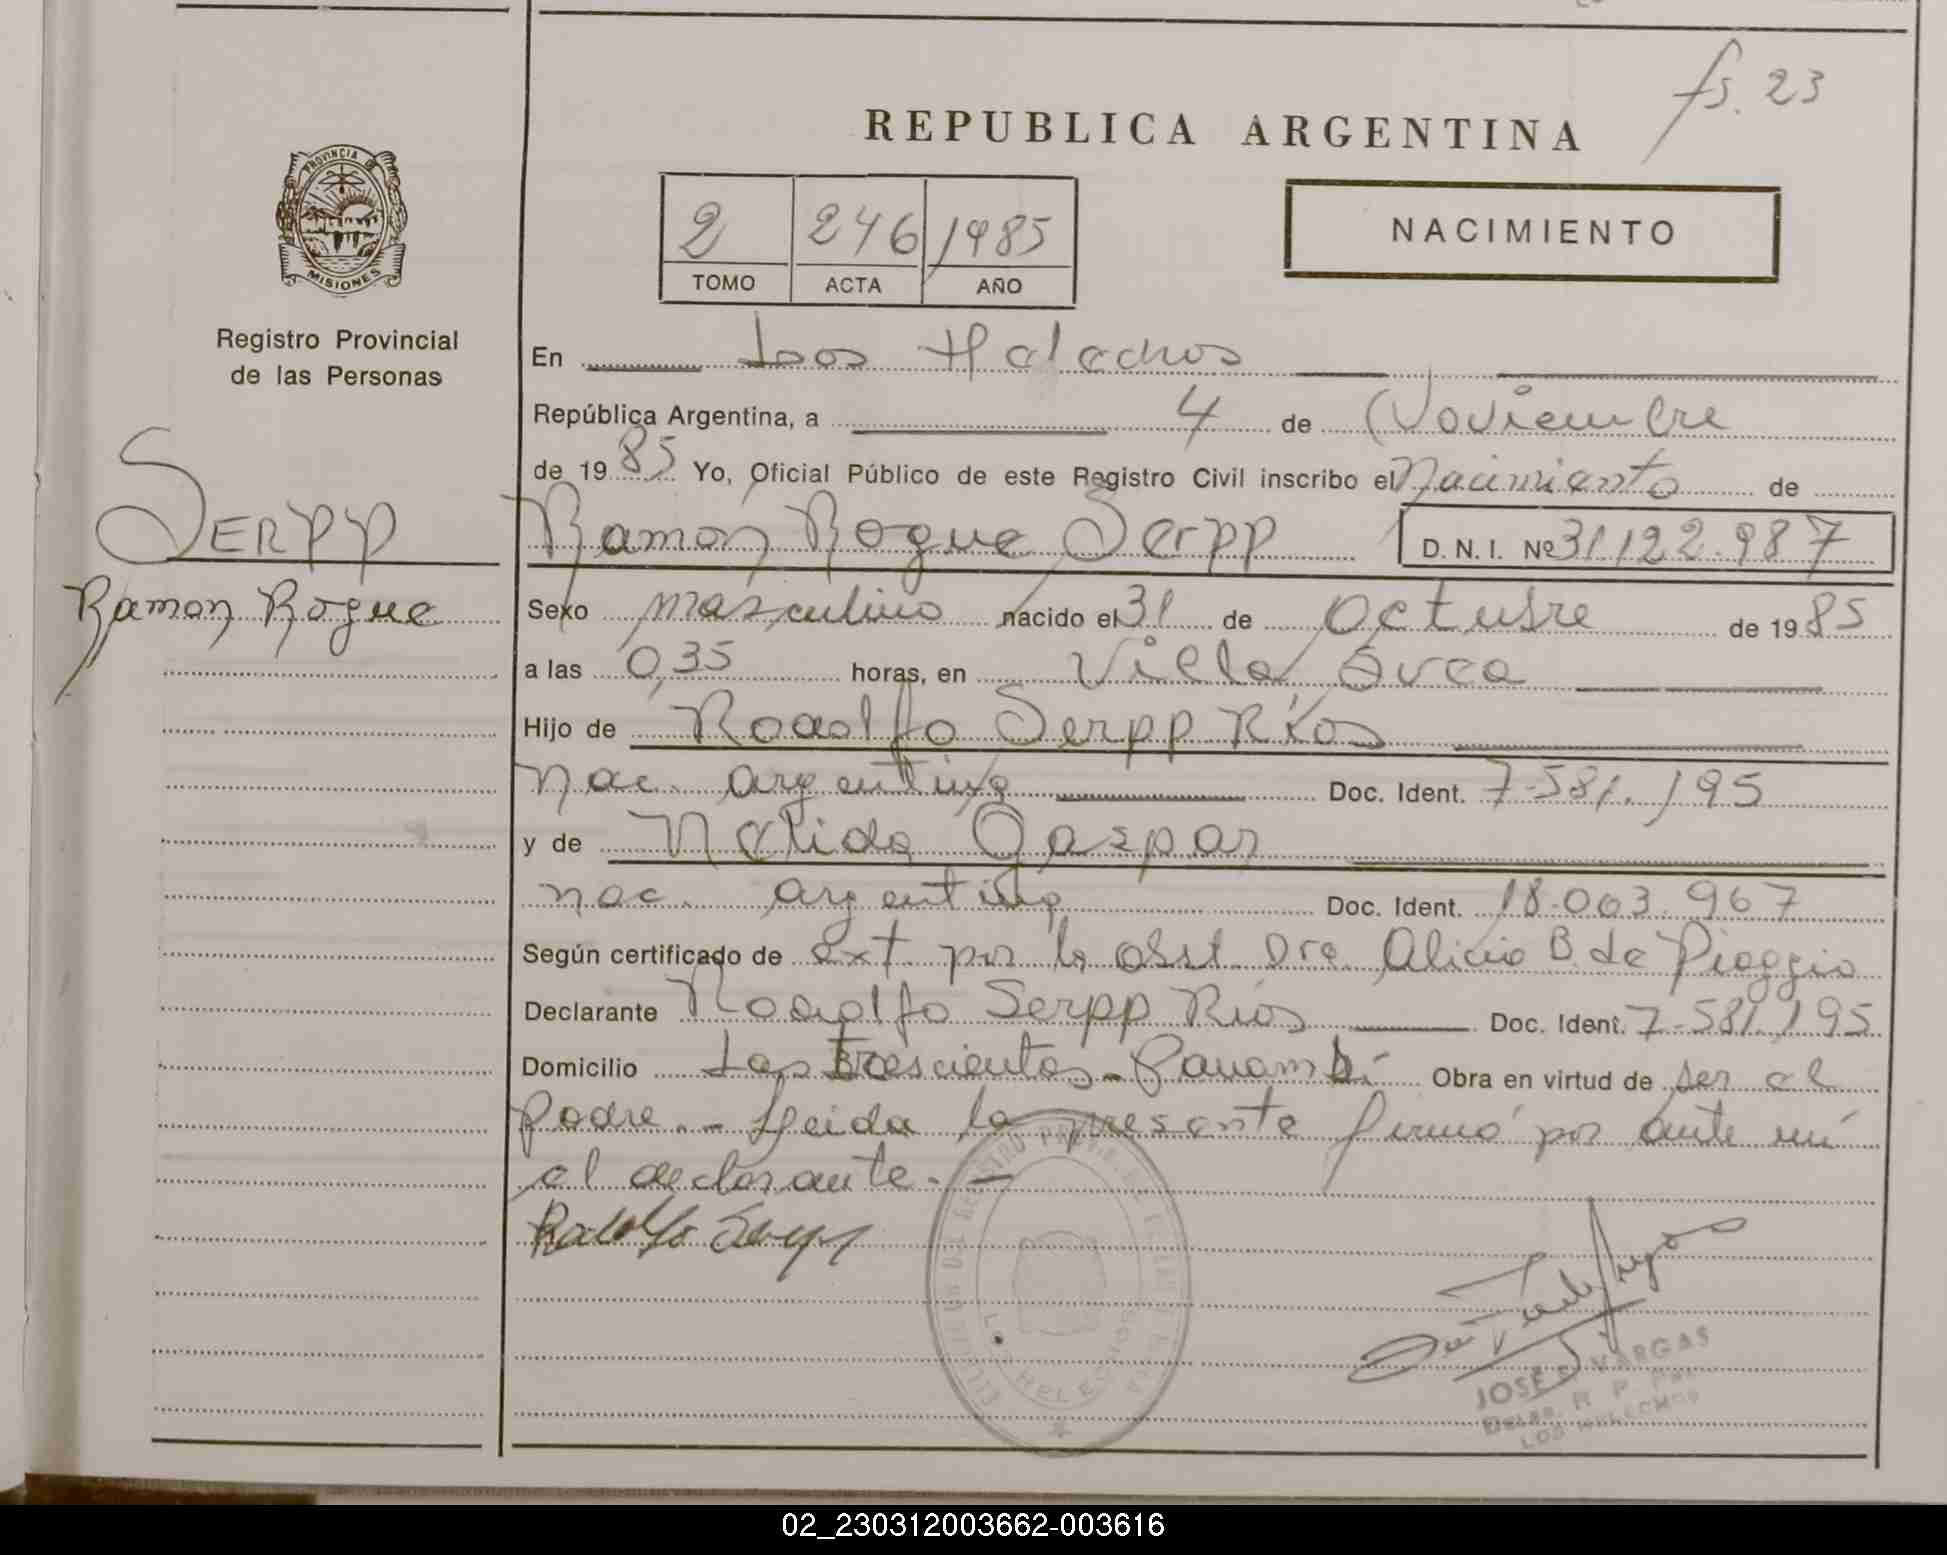 fs. 23
REPUBLICA ARGENTINA
PROVINCIA DE
MISIONES
2 246 1985
TOMO ACTA AÑO
NACIMIENTO
Registro Provincial
de las Personas
En Los Helechos
República Argentina, a 4 de Noviembre
de 1985 Yo, Oficial Público de este Registro Civil inscribo el Nacimiento de
SERPP
Ramón Roque
Ramón Roque Serpp D. N. I. Nº 31.122.987
Sexo masculino nacido el 31 de Octubre de 1985
a las 0,35 horas, en Villa Svea
Hijo de Rodolfo Serpp Ríos
nac. argentino Doc. Ident. 7.581.195
y de Nélida Gaspar
nac. argentina Doc. Ident. 18.003.967
Según certificado de ext. por la obst. Dra Alicia B. de Pioggio
Declarante Rodolfo Serpp Ríos Doc. Ident. 7.581.195
Domicilio Las Trescientas - Panambí Obra en virtud de ser el
padre. - Leida la presente firmó por ante mí
el declarante. -
Rodolfo Serpp
LOS HELECHOS
JOSE F. VARGAS
LOS HELECHOS
02_230312003662-003616